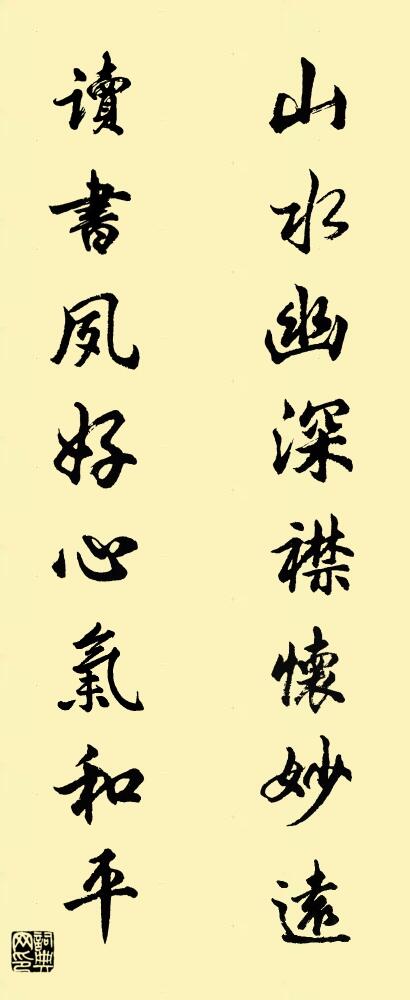 山水幽深襟懷妙遠
讀書夙好心氣和平
詞典網印